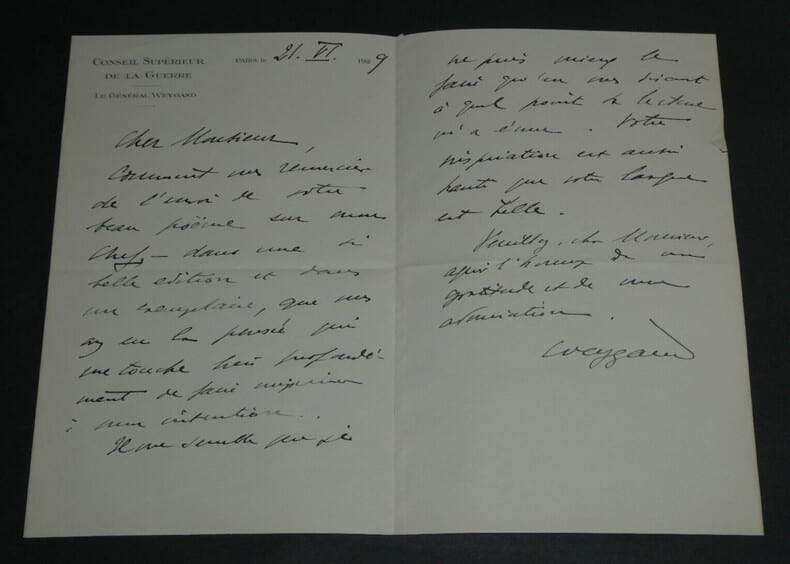 CONSEIL SUPÉRIEUR
DE LA GUERRE
LE GÉNÉRAL WEYGAND
PARIS le 21. VI. 1929
Cher Monsieur,
Comment vous remercier
de l'envoi de votre
beau poème sur mon
Chef – dans une si
belle edition et dans
un exemplaire, que vous
avez eu la pensée qui
me touche très profondé-
ment de faire imprimer
à mon intention.
Il me semble que je
ne puis mieux le
faire qu'en vous disant
à quel point sa lecture
m'a ému. Votre
inspiration est aussi
haute que votre langue
est belle.
Veuillez, cher Monsieur,
agréer l'hommage de ma
gratitude et de mon
admiration.
Weygand